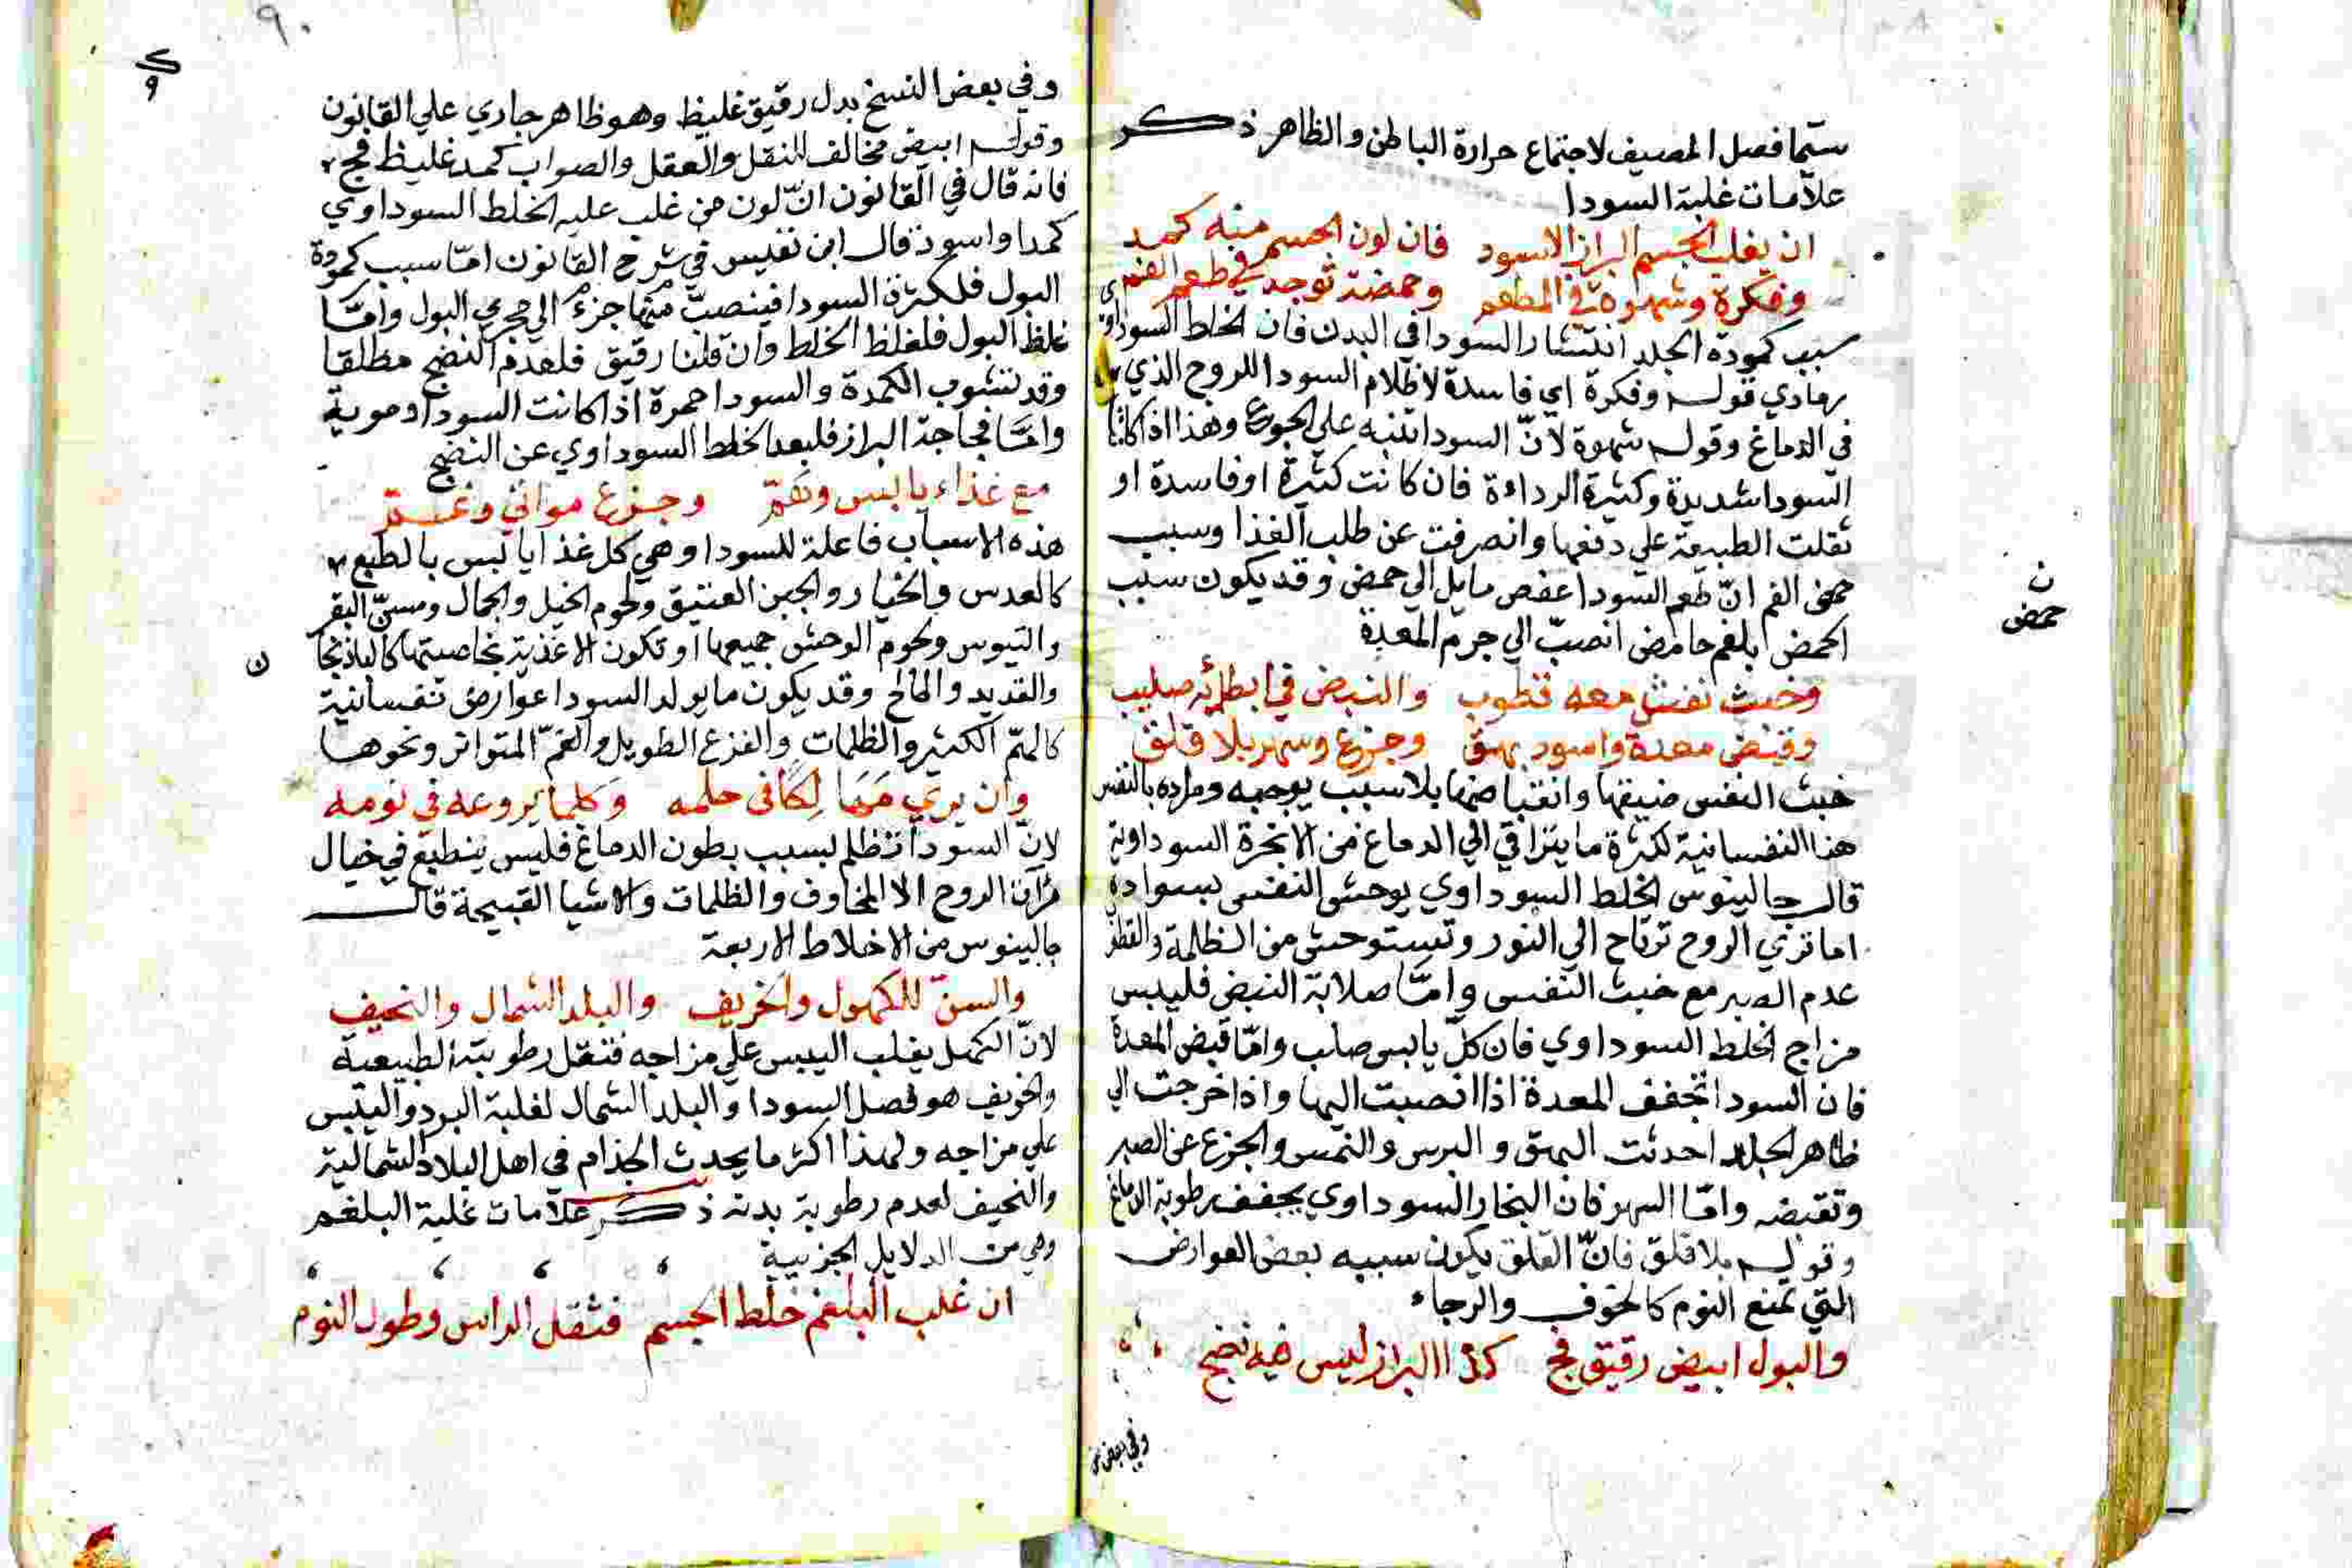 سيما فصل المصيف لاجتماع حرارة الباطن والظاهر ذكر
علامات غلبة السودا
ان يغلب الجسم البراز الاسود فان لون الجسم منه كمد
وفكرة وشهوة في المطعم وحمضة توجد في طعم الفم
سبب كمودة الجلد انتشار السودا في البدن فان الخلط السوداوي
رمادي قوله وفكرة اي فاسدة لاظلام السودا للروح الذي
في الدماغ وقوله شهوة لانّ السودا تنبه على الجوع وهذا اذا كانت
السودا شديدة وكثيرة الرداءة فان كانت كثيرة اوفاسدة او
ثقلت الطبيعة علي دفعها وانصرفت عن طلب الغذا وسبب
حمض الفم انّ طعم السودا عفص مايل الي حمض وقد يكون سبب
الحمض بلغم حامض انصبّ الي جرم المعدة
ن
حمض
وخبث نفس معه قطوب والنبض في ابطائه صليب
وقبض معدة واسود بهق وجزع وسهر بلا قلق
خبث النفس ضيقها وانقباضها بلا سبب يوجبه ومراده بالنفس
هنا النفسانية لكثرة ما يتراقي الي الدماغ من الابخرة السوداوية
قال جالينوس الخلط السوداوي يوحش النفس بسواده
اما تري الروح ترتاح الي النور وتستوحش من الظلمة والقطوب
عدم الصبر مع خبث النفس وامّا صلابة النبض فليبس
مزاج الخلط السوداوي فان كلّ يابس صلب وامّا قبض المعدة
فان السودا تجفف المعدة اذا انصبت اليها واذا خرجت الي
ظاهر الجلد احدثت البهق و البرس والنمس والجزع عن الصبر
وتقبضه وامّا السهر فان البخار السوداوي يجفف رطوبة الدماغ
وقوله بلا قلق فانّ القلق يكون سببه بعض العوارض
التي تمنع النوم كالخوف والرجاء
والبول ابيض رقيق فج كذا البراز ليس فيه نضج
وفي بعض
٩٠
وفي بعض النسخ بدل رقيق غليظ وهو ظاهر جاري علي القانون
وقوله ابيض مخالف للنقل والعقل والصواب كمد غليظ فج
فانه قال في القانون انّ لون من غلب عليه الخلط السوداوي
كمدا واسود قال ابن نفيس في شرح القانون امّا سبب كمودة
البول فلكثرة السودا فينصبّ منها جزءٌ الي مجري البول وامّا
غلظ البول فلغلظ الخلط وان قلنا رقيق فلعدم النضج مطلقا
وقد تشوب الكمدة والسودا حمرة اذا كانت السودا دموية
وامّا فجاجة البراز فلبعد الخلط السوداوي عن النضج
مع غذاء يابس وهمّ وجزع موافي وغمّ
هذه الاسباب فاعلة للسودا وهي كل غذا يابس بالطبع
كالعدس والخيار والجبن العتيق ولحوم الخيل والجمال ومسنّ البقر
والتيوس ولحوم الوحش جميعها او تكون الاغذية بخاصيتها كالباذنجا
ن
والقديد والمالح وقد يكون ما يولد السودا عوارض نفسانية
كالهمّ الكثير والظلمات والفزع الطويل والغمّ المتواتر ونحوها
وان يري في حلمه وكلما يروعه في نومه
لانّ السودا تظلم بسبب بطون الدماغ فليس ينطبع في خيال
مرآن الروح الا المخاوف والظلمات والاشيا القبيحة قال
جالينوس من الاخلاط الاربعة
والسنّ للكهول والخريف والبلد الشمال والنحيف
لانّ الكهل يغلب اليبس علي مزاجه فتقل رطوبته الطبيعية
والخريف هو فصل السودا والبلد الشمال لغلبة البرد واليبس
علي مزاجه ولهذا اكثر ما يحدث الجذام في اهل البلاد الشمالية
والنحيف لعدم رطوبة بدنه ذكر علامات غلبة البلغم
وهي من الدلايل الجزبية
ان غلب البلغم خلط الجسم فثقل الراس وطول النوم